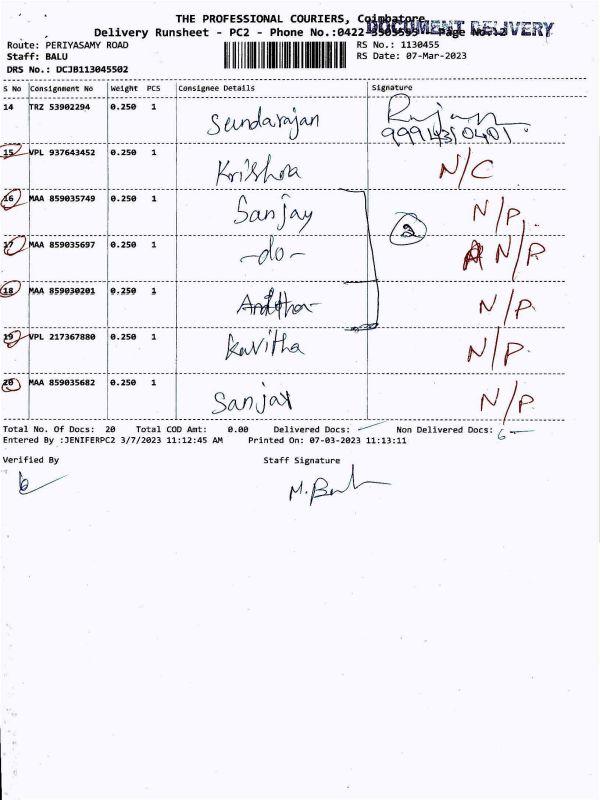 THE PROFESSIONAL COURIERS, Coimbatore
DOCUMENT DELIVERY
Delivery Runsheet - PC2 - Phone No.:0422 Page No.:2
Route: PERIYASAMY ROAD RS No.: 1130455
Staff: BALU RS Date: 07-Mar-2023
DRS No.: DCJB113045502
S No Consignment No Weight PCS Consignee Details Signature
14 TRZ 53902294 0.250 1 Sundarajan Rajan
9994350401
15 VPL 937643452 0.250 1 Krishna N/C
16 MAA 859035749 0.250 1 Sanjay N/P.
2
17 MAA 859035697 0.250 1 -do- N/P
18 MAA 859030201 0.250 1 N/P.
19 VPL 217367880 0.250 1 Kavitha N/P.
20 MAA 859035682 0.250 1 Sanjay N/P.
Total No. Of Docs: 20 Total COD Amt: 0.00 Delivered Docs: Non Delivered Docs: 6
Entered By :JENIFERPC2 3/7/2023 11:12:45 AM Printed On: 07-03-2023 11:13:11
Verified By Staff Signature